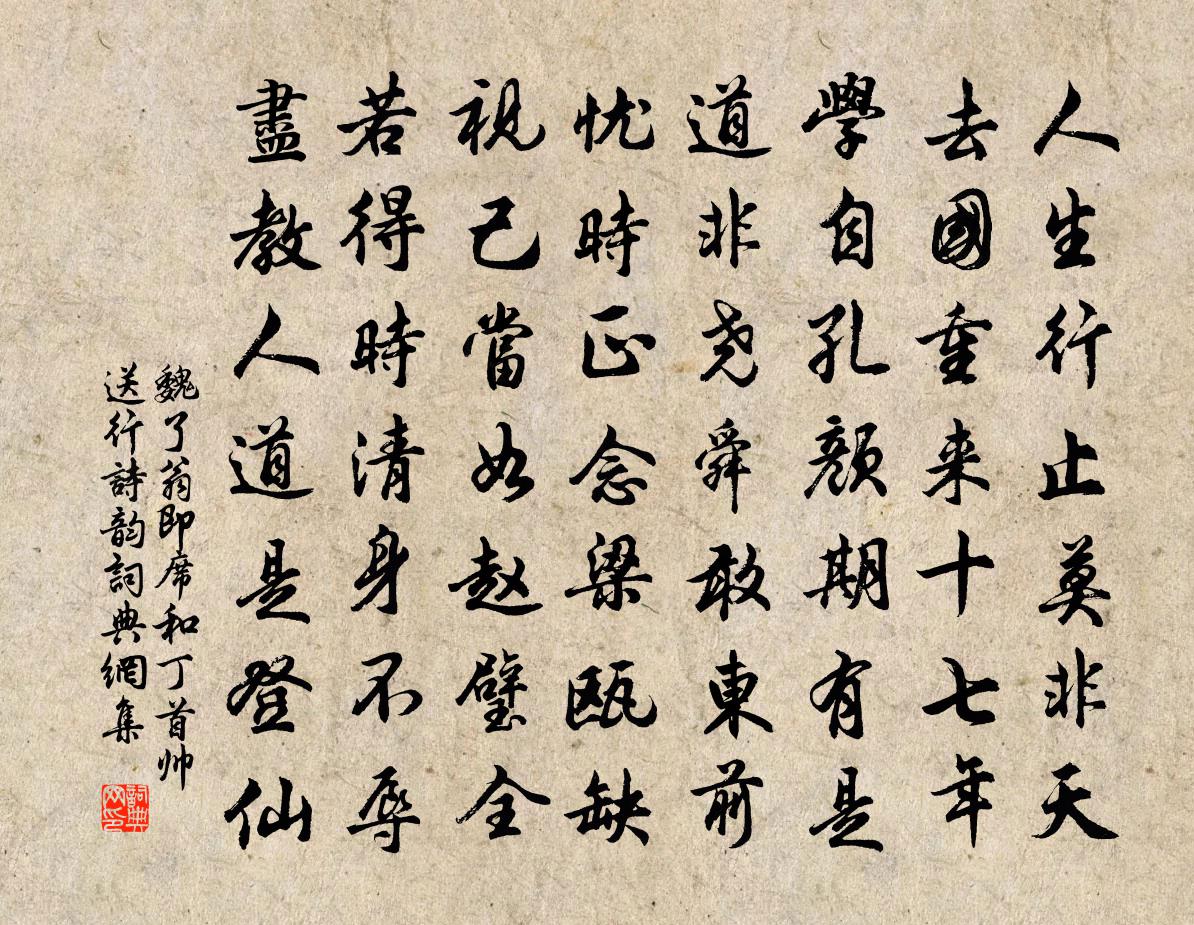 人生行止莫非天
去國重来十七年
學自孔顏期有是
道非尧舜敢東前
忧時正念梁甌缺
視己當如赵璧全
若得時清身不辱
盡教人道是登仙
魏了翁即席和丁首帅
送行詩韵詞典網集
詞典网印